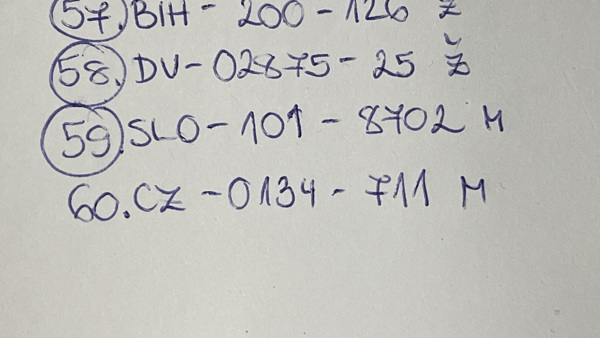 57. BIH - 200 - 126 Ž
58. DV - 02875 - 25 Ž
59. SLO - 101 - 8702 M
60. CZ - 0134 - 711 M